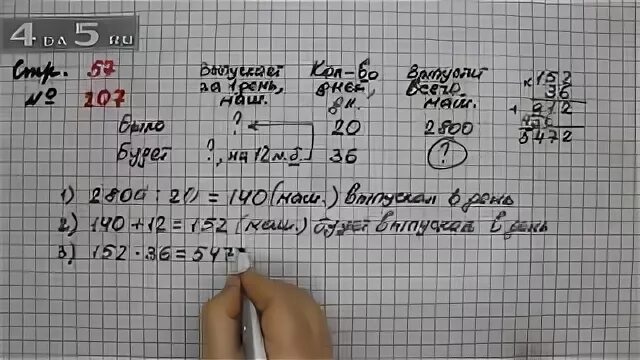 4 да 5 RU
Стр. 57
№ 207
Выпускает за 1 день, маш.
Кол-во дней, дн.
Выпустит всего, маш.
Было ? 20 2800
Будет ?, на 12 м. б. 36 ?
× 152
36
+ 912
456
5472
1) 2800 : 20 = 140 (маш.) выпускал в день
2) 140 + 12 = 152 (маш.) будет выпускать в день
3) 152 · 36 = 547